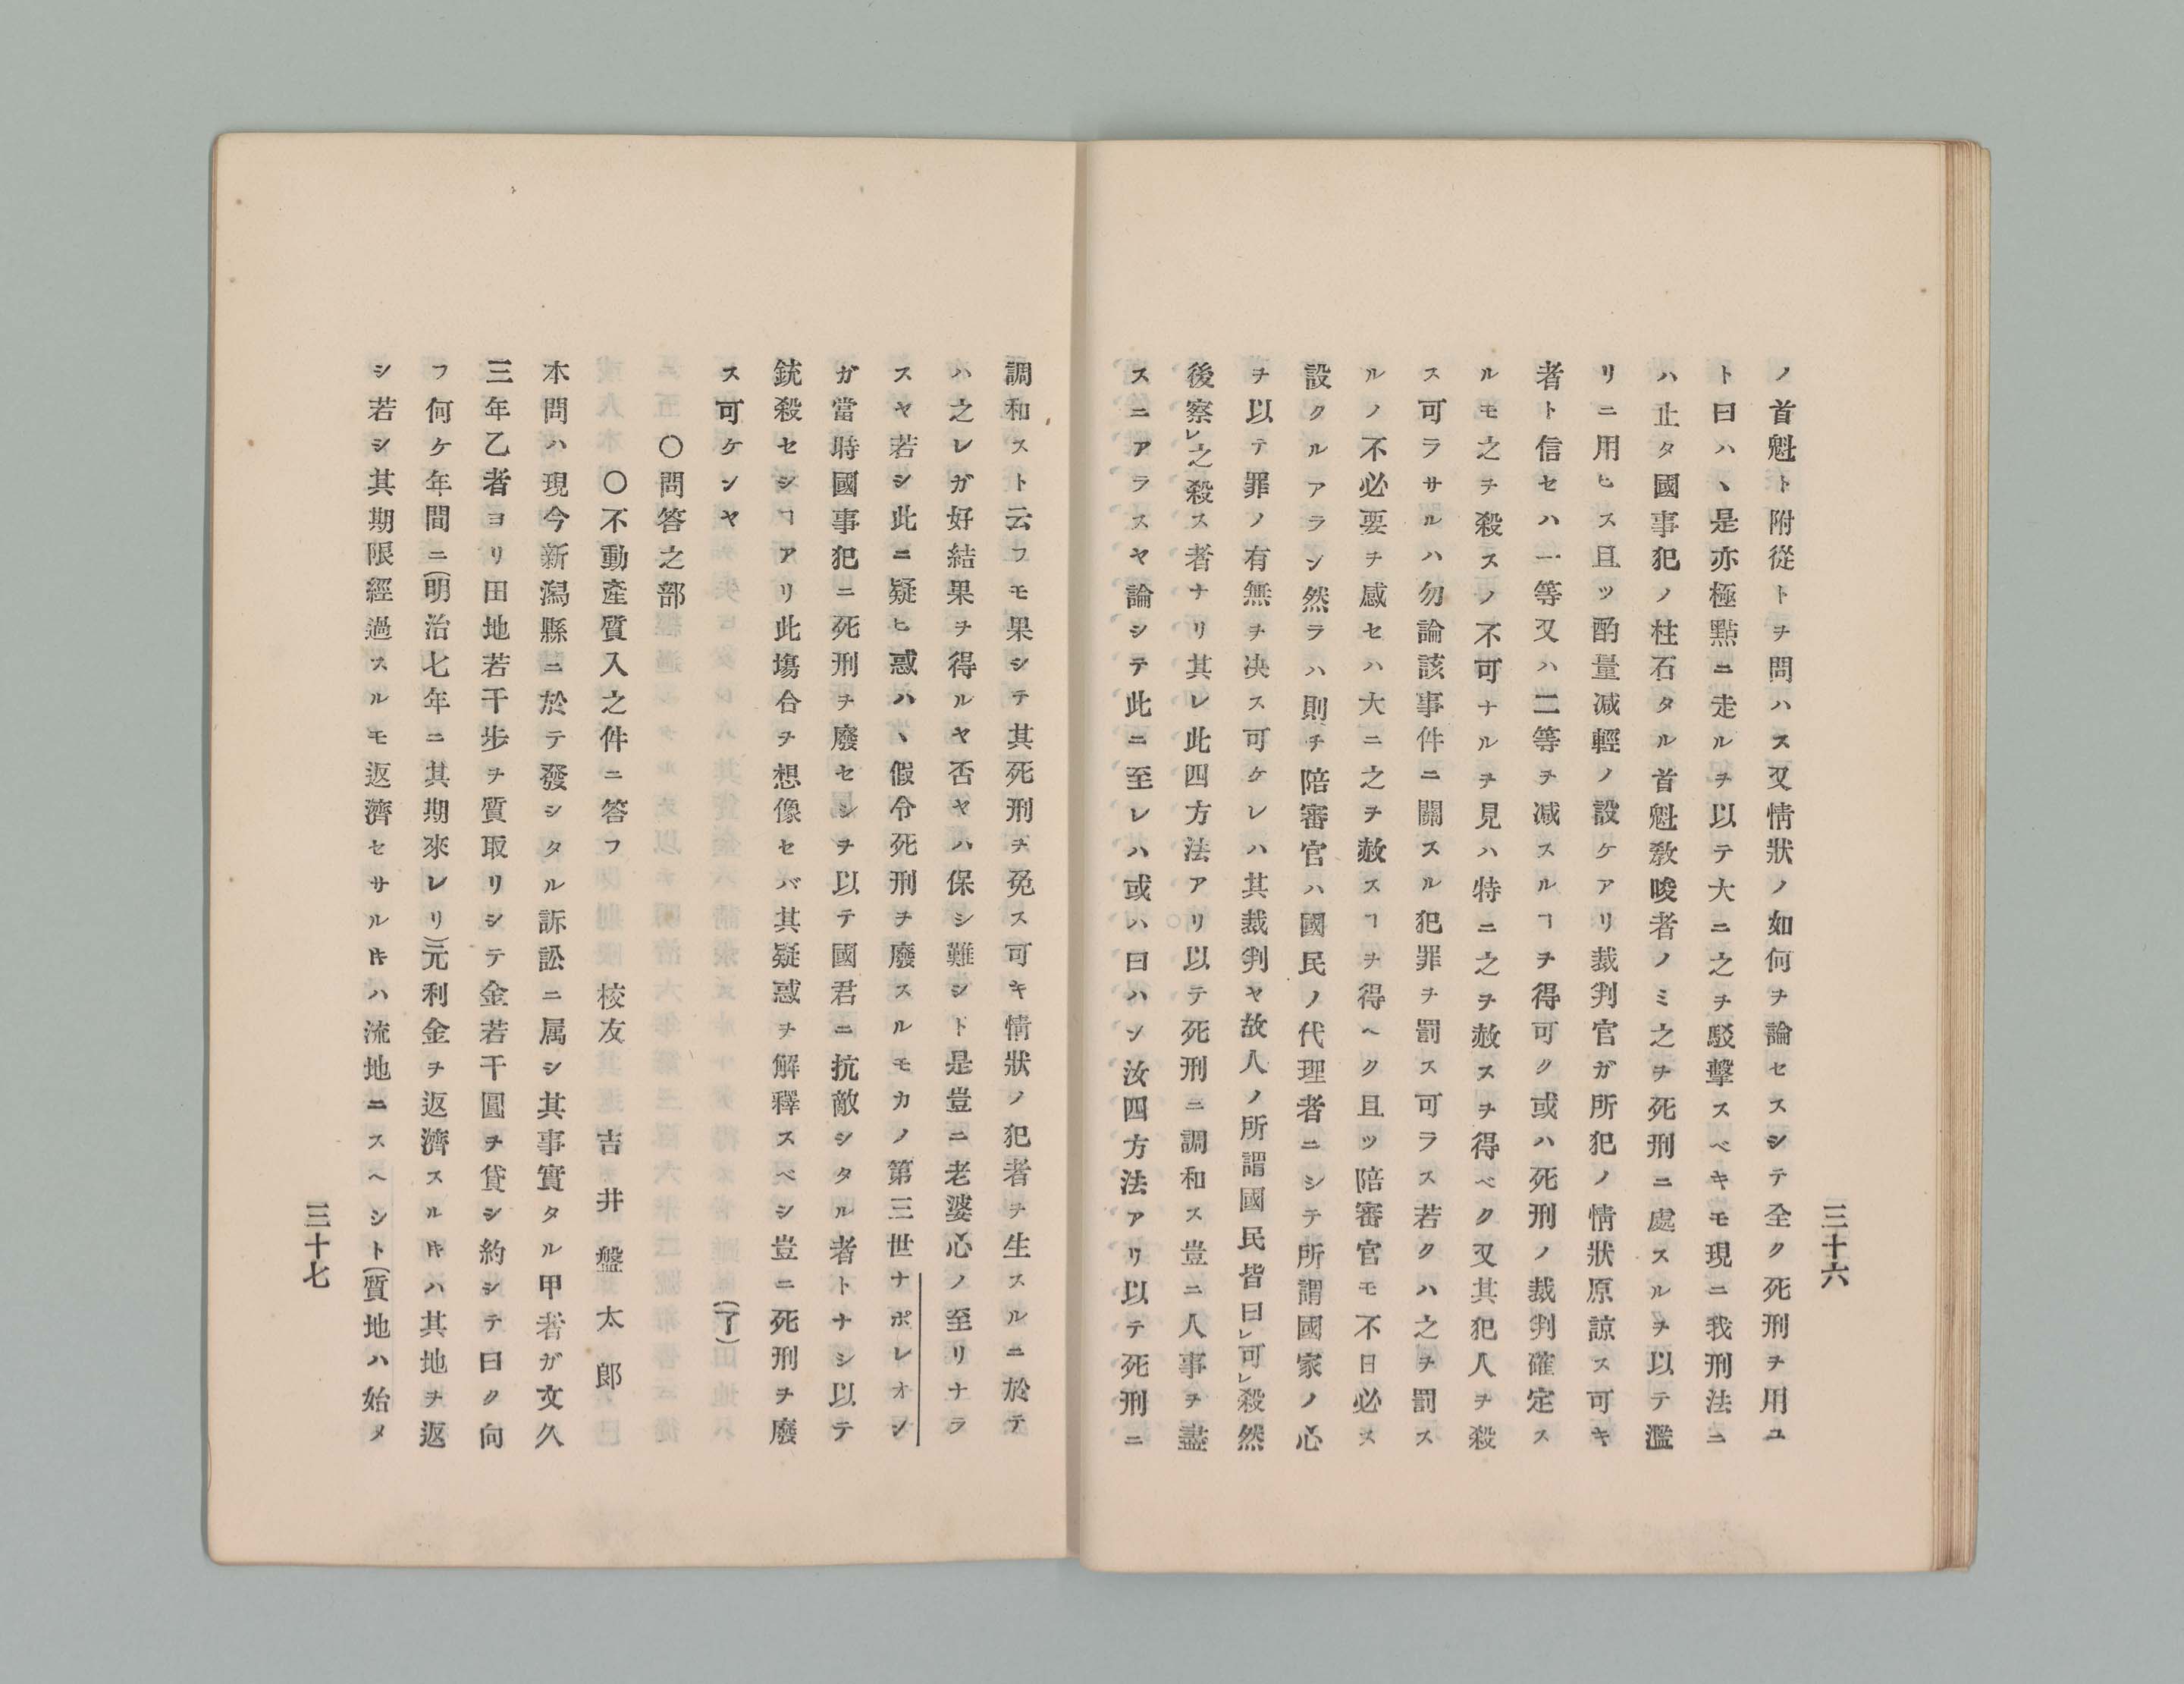 三十六
ノ首魁ト附從トヲ問ハス又情狀ノ如何ヲ論セスシテ全ク死刑ヲ用ユ
ト曰ハヽ是亦極點ニ走ルヲ以テ大ニ之ヲ駁擊スベキモ現ニ我刑法ニ
ハ止タ國事犯ノ柱石タル首魁敎唆者ノミ之ヲ死刑ニ處スルヲ以テ濫
リニ用ヒス且ツ酌量減輕ノ設ケアリ裁判官ガ所犯ノ情狀原諒ス可キ
者ト信セハ一等又ハ二等ヲ減スルヿヲ得可ク或ハ死刑ノ裁判確定ス
ルモ之ヲ殺スノ不可ナルヲ見ハ特ニ之ヲ赦スヲ得ベク又其犯人ヲ殺
ス可ラサルハ勿論該事件ニ關スル犯罪ヲ罰ス可ラス若クハ之ヲ罰ス
ルノ不必要ヲ感セハ大ニ之ヲ赦スヿヲ得ヘク且ツ陪審官モ不日必ス
設クルアラン然ラハ則チ陪審官ハ國民ノ代理者ニシテ所謂國家ノ心
ヲ以テ罪ノ有無ヲ决ス可ケレハ其裁判ヤ故人ノ所謂國民皆曰レ可レ殺然
後察レ之殺ス者ナリ其レ此四方法アリ以テ死刑ニ調和ス豈ニ人事ヲ盡
スニアラスヤ論シテ此ニ至レハ或ハ曰ハン汝四方法アリ以テ死刑ニ
調和スト云フモ果シテ其死刑ヲ免ス可キ情狀ノ犯者ヲ生スルニ於テ
ハ之レガ好結果ヲ得ルヤ否ヤハ保シ難シト是豈ニ老婆心ノ至リナラ
スヤ若シ此ニ疑ヒ惑ハヽ假令死刑ヲ廢スルモカノ第三世ナポレオン
ガ當時國事犯ニ死刑ヲ廢セシヲ以テ國君ニ抗敵シタル者トナシ以テ
銃殺セシヿアリ此塲合ヲ想像セバ其疑惑ヲ解釋スベシ豈ニ死刑ヲ廢
ス可ケンヤ (了)
〇問答之部
〇不動產質入之件ニ答フ 校友 吉井盤太郎
本問ハ現今新潟縣ニ於テ發シタル訴訟ニ属シ其事實タル甲者ガ文久
三年乙者ヨリ田地若干歩ヲ質取リシテ金若干圓ヲ貸シ約シテ曰ク向
フ何ケ年間ニ(明治七年ニ其期來レリ)元利金ヲ返濟スルトキハ其地ヲ返
シ若シ其期限經過スルモ返濟セサルトキハ流地ニスヘシト(質地ハ始メ
三十七